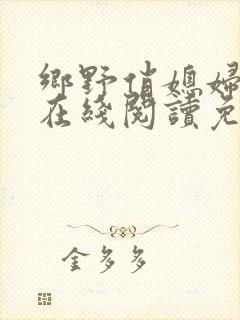 鄉野俏媳婦
在綫閱讀免
金多多